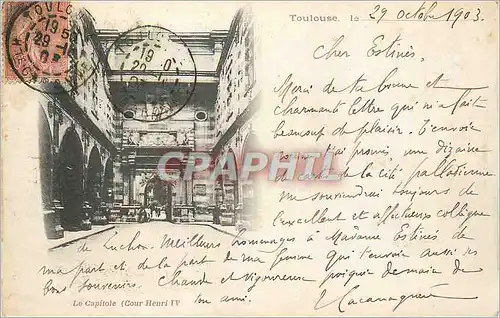 Toulouse, le 29 octobre 1903.
Cher Estinès,
Merci de ta bonne et
charmante lettre qui m'a fait
beaucoup de plaisir. J'envoie
comme j'ai promis une dizaine
de de la cité palladienne
Me souviendrai toujours de
l'excellent et affectueux collègue
de Luchon. Meilleurs hommages à Madame Estinès de
ma part et de la part de ma femme qui t'envoie aussi ses
bons souvenirs. Chaude et vigoureuse poignée de main de
ton ami.
Le Capitole (Cour Henri IV
CPA